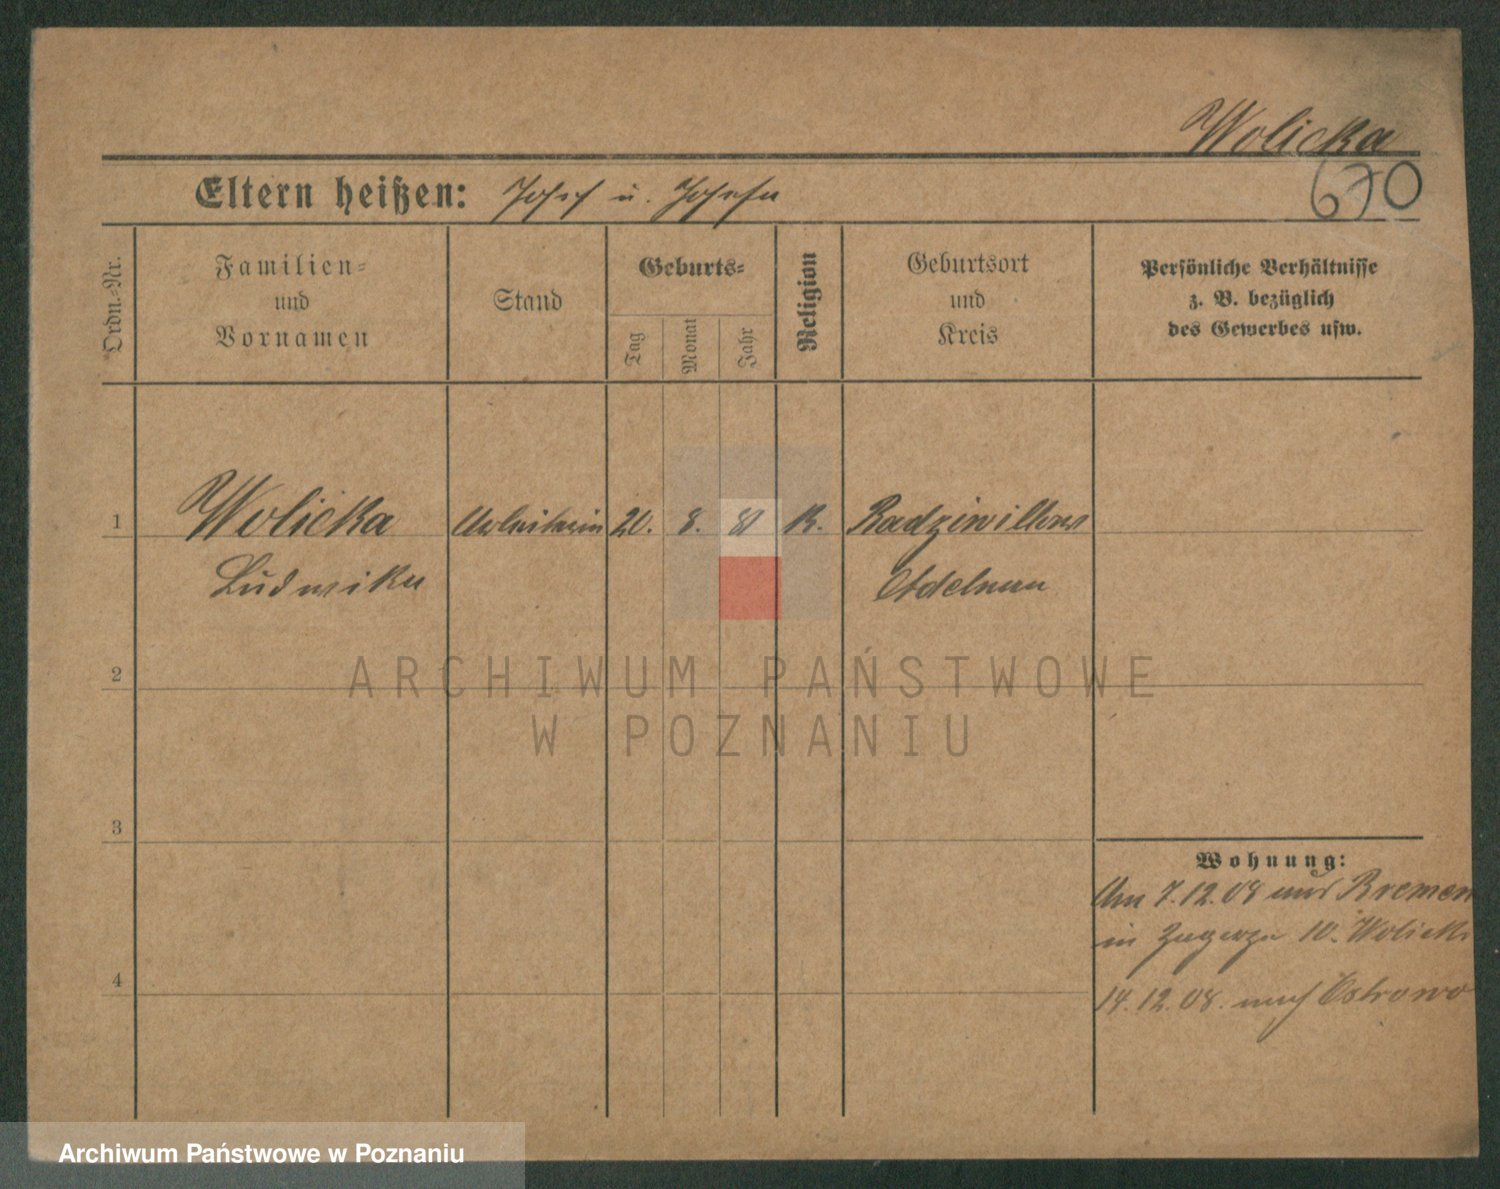 Wolicka
670
Eltern heißen: Josef u. Josefa
Ordn.-Nr.
Familien=
und
Vornamen
Stand
Geburts=
Tag
Monat
Jahr
Religion
Geburtsort
und
Kreis
Persönliche Verhältnisse
z. B. bezüglich
des Gewerbes usw.
1
Wolicka
Ludwika
Arbeiterin
20. 8. 81
K.
Radziwillow
Adelnau
2
ARCHIWUM PAŃSTWOWE
W POZNANIU
3
Wohnung:
Am 7.12.08 aus Bremen
in 10. Wolicki
4
14.12.08. nach Ostrowo
Archiwum Państwowe w Poznaniu